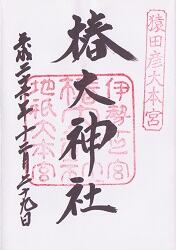 猿田彦大本宮
伊勢一之宮
椿大神社
地祇大本宮
平成二十年十二月二十九日